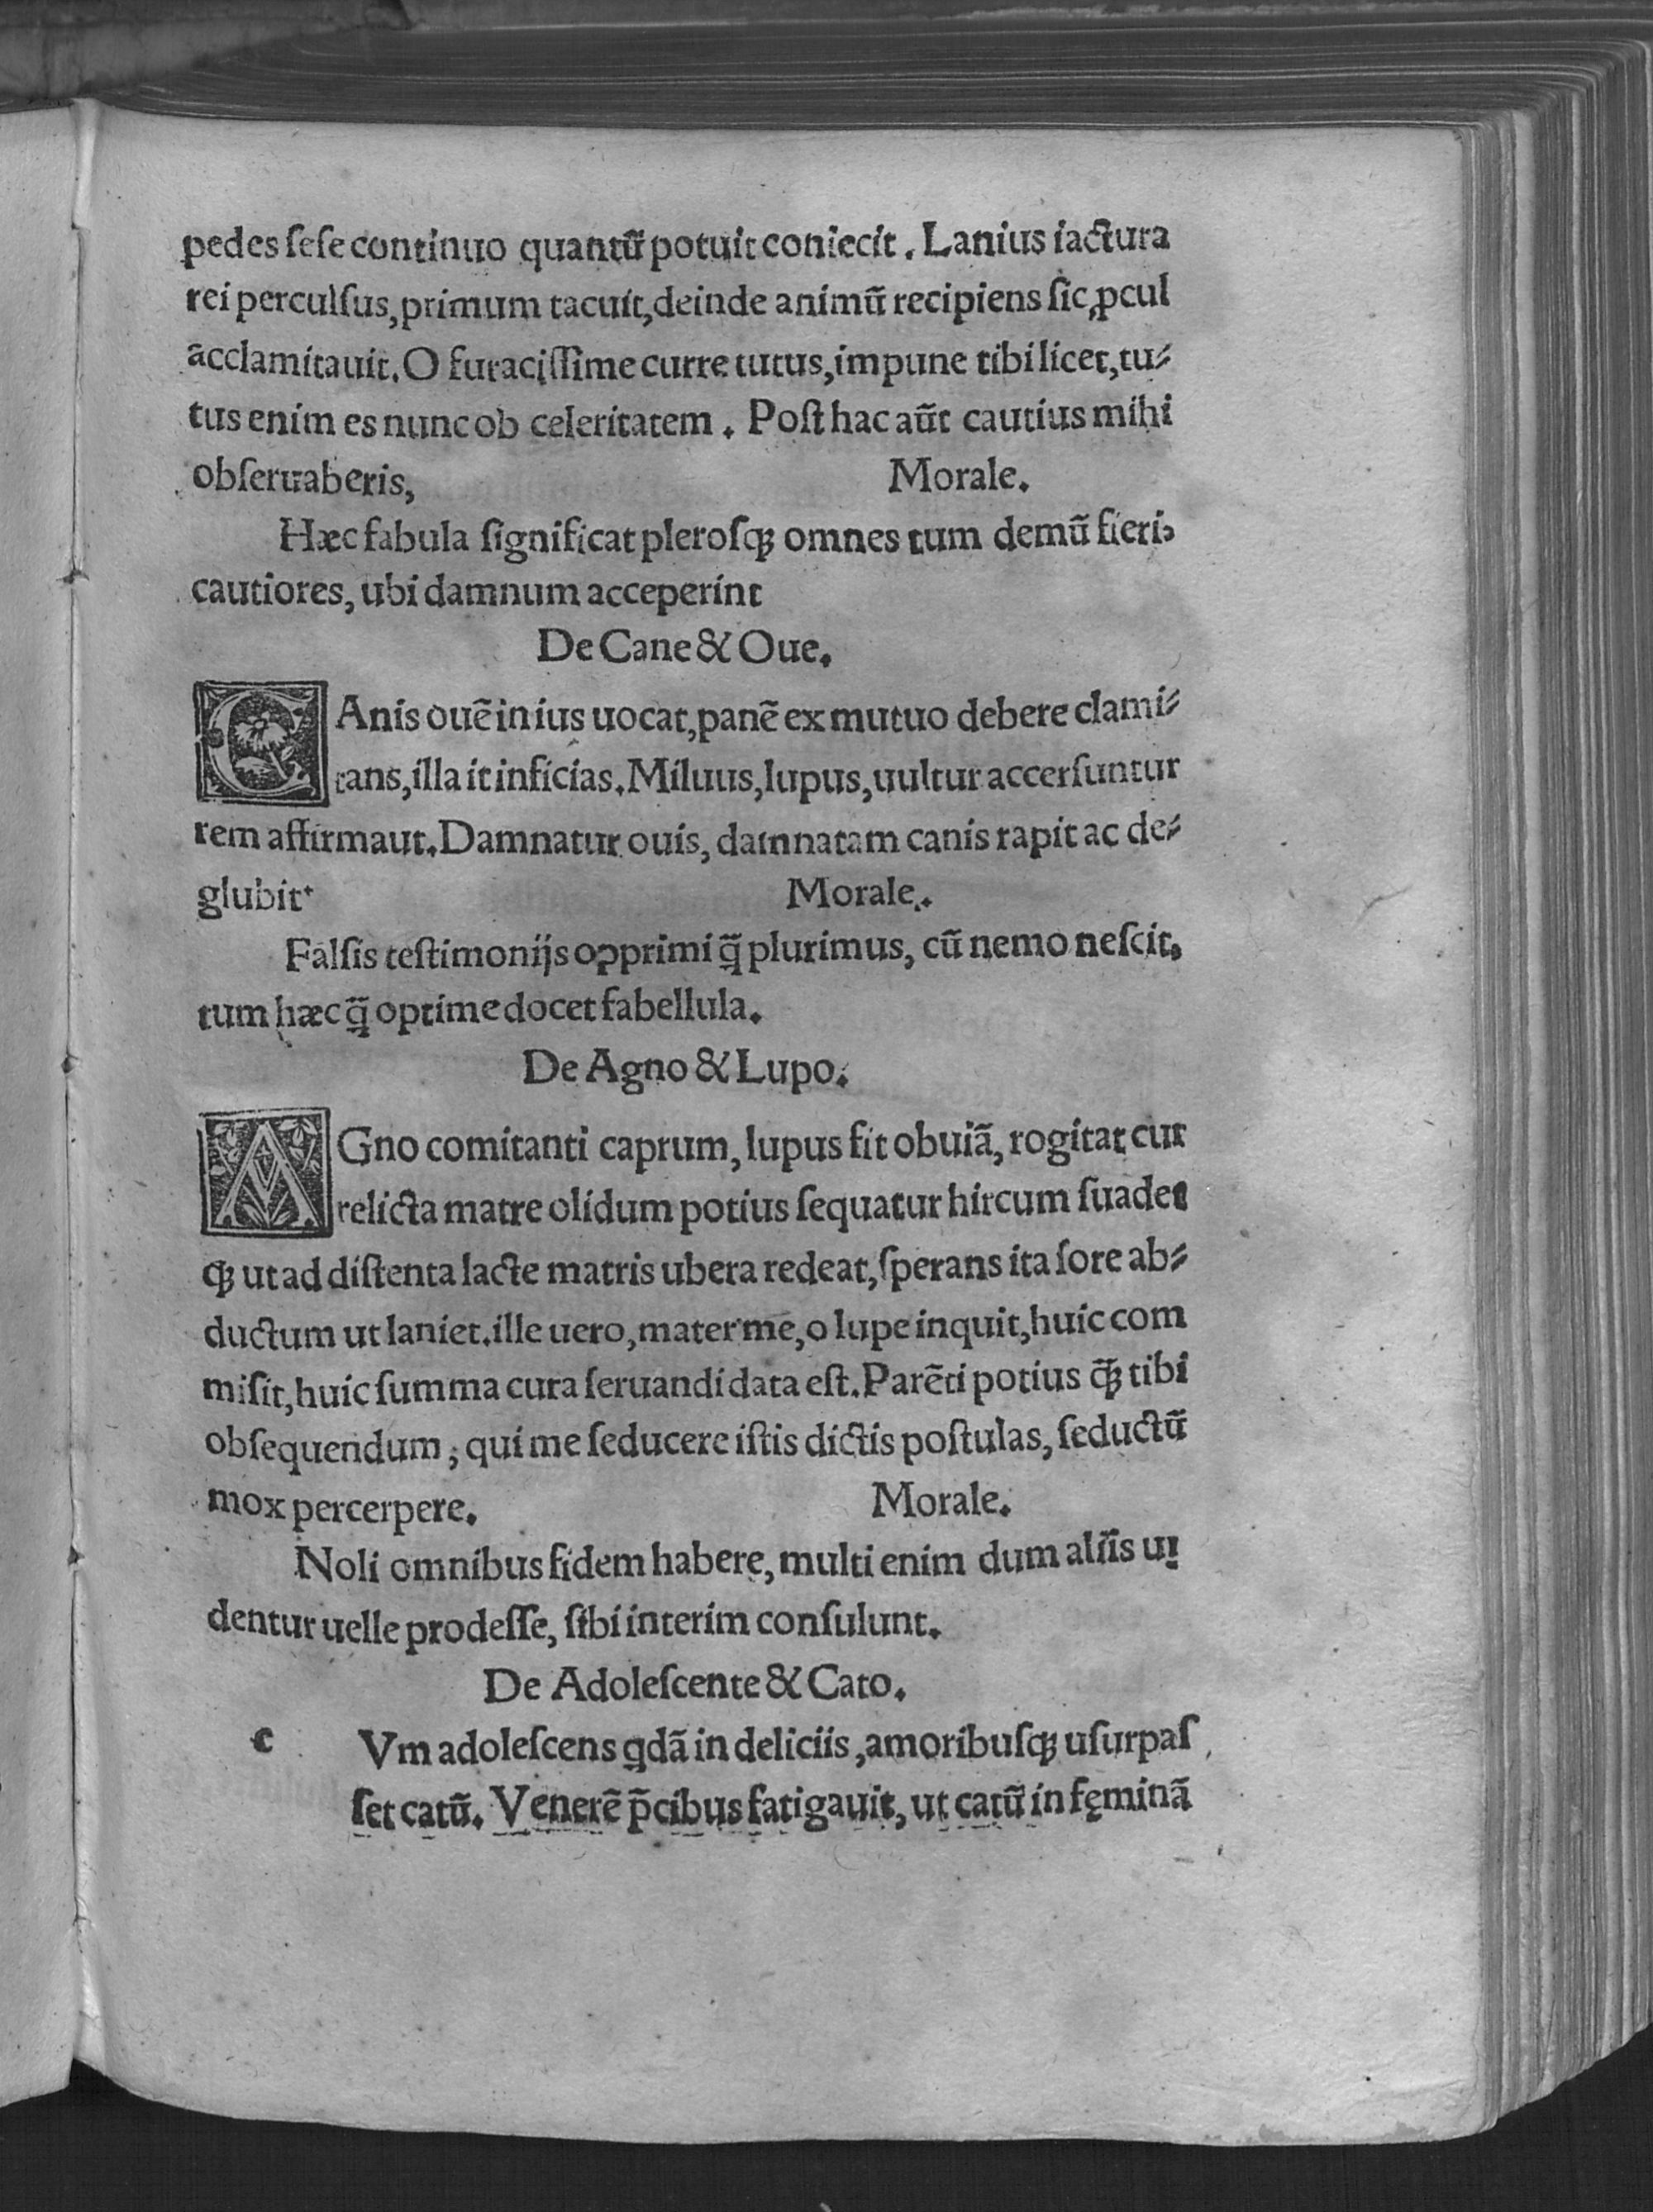 pedes ſeſe continuo quantū potuit coniecit. Lanius iactura
rei perculſus, primum tacuit, deinde animū recipiens ſic ꝓcul
acclamitauit. O furaciſſime curre tutus, impune tibi licet, tu⸗
tus enim es nunc ob celeritatem. Poſt hac aūt cautius mihi
obſeruaberis, Morale.
Hæc fabula ſignificat pleroſqꝫ omnes tum demū fieri
cautiores, ubi damnum acceperint
De Cane & Oue.
CAnis ouē in ius uocat, panē ex mutuo debere clami⸗
tans, illa it inficias. Miluus, lupus, uultur accerſuntur
rem affirmaut. Damnatur ouis, damnatam canis rapit ac de⸗
glubit. Morale.
Falſis teſtimonijs opprimi q̄ plurimus, cū nemo neſcit,
tum hæc q̄ optime docet fabellula.
De Agno & Lupo.
AGno comitanti caprum, lupus fit obuiā, rogitat cur
relicta matre olidum potius ſequatur hircum ſuadet
qꝫ ut ad diſtenta lacte matris ubera redeat, ſperans ita fore ab⸗
ductum ut laniet. ille uero, mater me, o lupe inquit, huic com
miſit, huic ſumma cura ſeruandi data eſt. Parēti potius q̄ꝫ tibi
obſequendum; qui me ſeducere iſtis dictis poſtulas, ſeductū
mox percerpere. Morale.
Noli omnibus fidem habere, multi enim dum aliis ui
dentur uelle prodeſſe, ſibi interim conſulunt.
De Adoleſcente & Cato.
c Vm adoleſcens qdā in deliciis, amoribuſqꝫ uſurpaſ
ſet catū. Venerē p̄cibus fatigauit, ut catū in fęminā